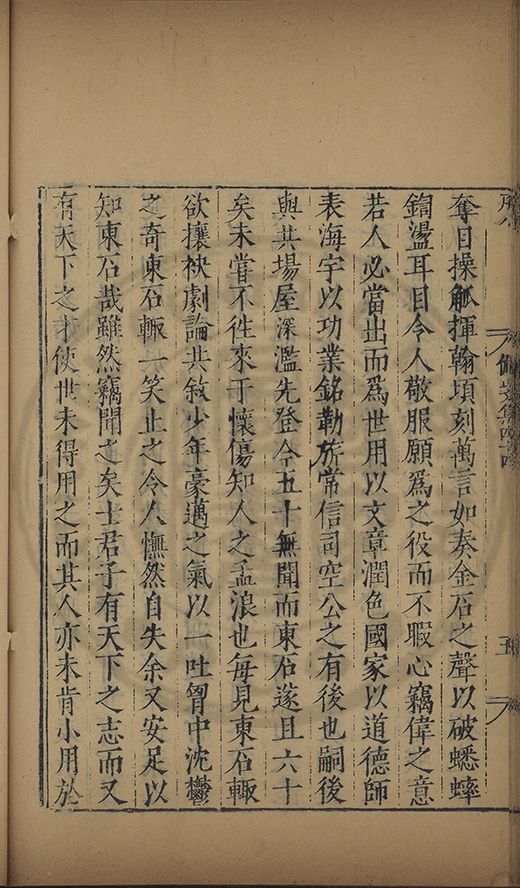 奪目操觚揮翰頃刻萬言如奏金石之聲以破蟋蟀
鍧盪耳目令人敬服願爲之役而不暇心竊偉之意
若人必當出而爲世用以文章潤色國家以道德師
表海宇以功業銘勒旂常信司空公之有後也嗣後
與共場屋深濫先登今五十無聞而東石遂且六十
矣未嘗不徃來于懷傷知人之孟浪也每見東石輙
欲攘袂劇論共敘少年豪邁之氣以一吐胷中沈鬱
之奇東石輙一笑止之令人憮然自失余又安足以
知東石哉雖然竊聞之矣士君子有天下之志而又
有天下之才使世未得用之而其人亦未肯小用於